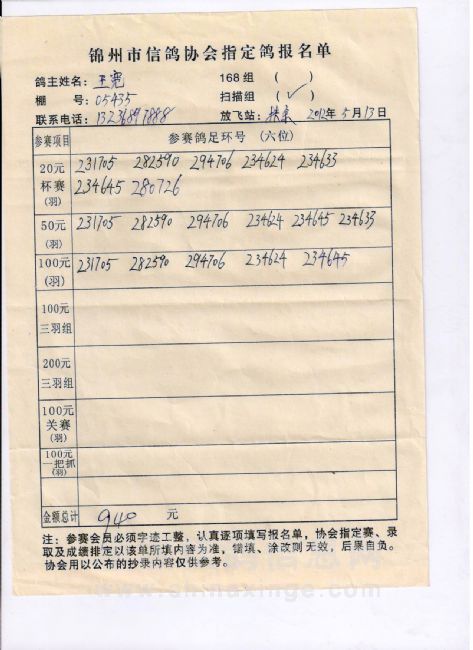 锦州市信鸽协会指定鸽报名单
鸽主姓名: 王宽 168组 ( )
棚 号: 05435 扫描组 ( ✓ )
联系电话: 13236897888 放飞站: 2012年5月13日
参赛项目 参赛鸽足环号 (六位)
20元 231705 282590 294706 234624 234633
杯赛 234645 280726
(羽)
50元 231705 282590 294706 234624 234645 234633
(羽)
100元 231705 282590 294706 234624 234645
(羽)
100元
三羽组
200元
三羽组
100元
关赛
(羽)
100元
一把抓
(羽)
金额总计 940 元
注: 参赛会员必须字迹工整, 认真逐项填写报名单, 协会指定赛、录
取及成绩排定以该单所填内容为准, 错填、涂改则无效, 后果自负。
协会用以公布的抄录内容仅供参考。